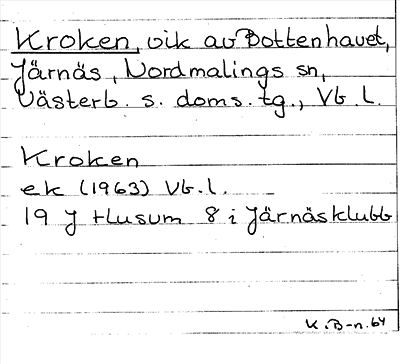 Kroken, vik av Bottenhavet,
Järnäs, Nordmalings sn,
Västerb. s. doms. tg., Vb. l.
Kroken
ek (1963) Vb. l.
19 J Husum 8 i Järnäsklubb
K. B-n. 64